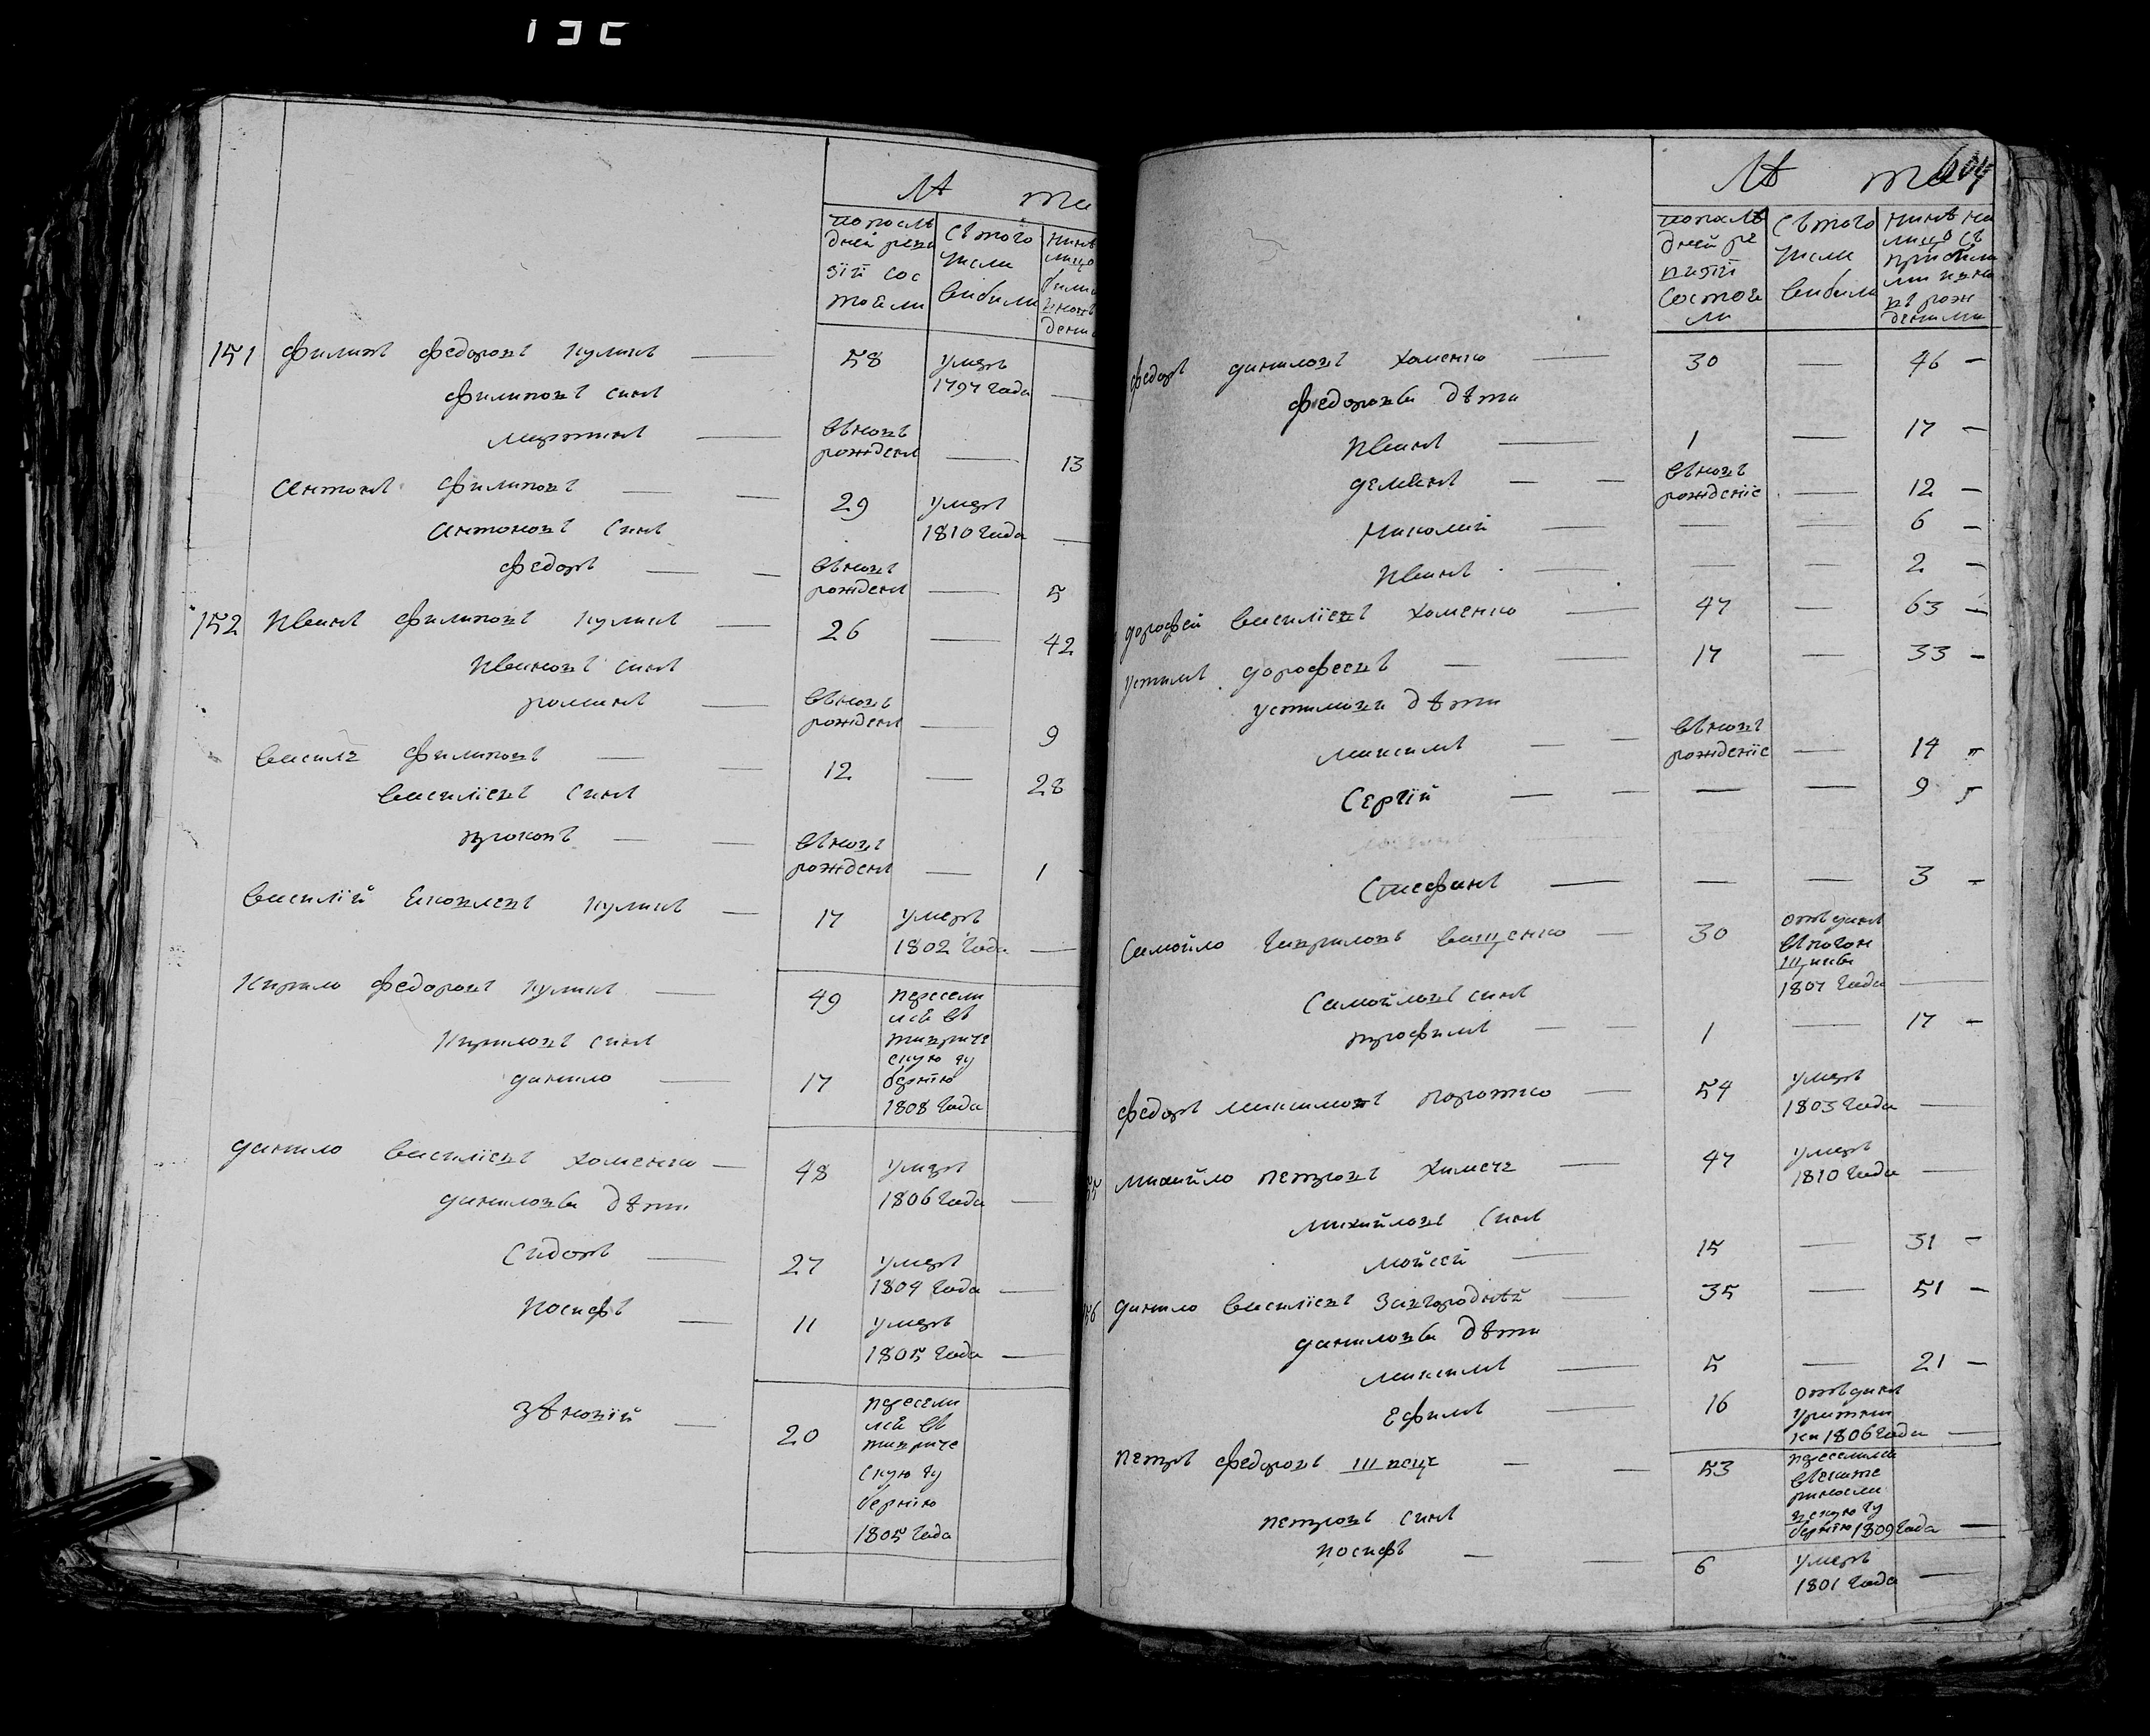 Лѣ та
попослѣ
дней реви
зіи сос
тоели
Съ того
числа
выбыли
151 Филипъ Федоровъ Куликъ — 58 умеръ
1797 года —
Филиповъ синъ
Мартинъ — въновъ
рожденъ — 13
Антонъ Филиповъ — — 29 умеръ
1810 года —
Антоновъ Синъ
Федоръ — — въновъ
рожденъ — 5
152 Иванъ Филиповъ Куликъ — 26 — 42
Ивановъ синъ
романъ — въновъ
рожденъ — 9
Василь Филиповъ — — 12 — 28
Василіевъ Синъ
прокопъ — — въновъ
рожденъ — 1
Василій Яковлевъ Куликъ — 17 умеръ
1802 года —
Кирило Федоровъ Куликъ — 49 пересели
лся въ
тавриче
скую гу
бернію
1808 года
Кириловъ синъ
данило — 17
данило Василіевъ Хоменко — 48 умеръ
1806 года —
даниловы дѣти
Сидоръ — 27 умеръ
1804 года —
Иосифъ — 11 умеръ
1805 года —
Зѣновій — 20 пересели
лся въ
тавриче
скую гу
бернію
1805 года
Лѣ та
попослѣ
дней ре
визіи
состоя
ли
Съ того
числа
выбыли
нинѣ на
лицо съ
прибили
ми и но
въ рож
денными
Федоръ даниловъ Хоменко — 30 — 46 —
Федоровы дѣти
Иванъ — 1 — 17 —
демянъ — — въновъ
рожденіе — 12 —
Николай — — — 6 —
Иванъ — — — 2 —
дорофей Василіевъ Хоменко — 47 — 63 —
Устимъ дорофеевъ — — 17 — 33 —
устимови дѣти
Максимъ — — въновъ
рожденіе — 14
Сергій — — — — 9
Стефанъ — — — 3 —
Самойло Гавриловъ Ващенко — 30 отъданъ
въпогон
щики
1807 года —
Самойловъ синъ
трофимъ — — 1 — 17 —
Федоръ Максимовъ поротко — 54 умеръ
1803 года —
Михайло петровъ Химечъ — 47 умеръ
1810 года —
Михайловъ Синъ
мойсей — 15 — 31 —
данило Василіевъ Завгородній — 35 — 51 —
даниловы дѣти
максимъ — 5 — 21 —
Ефимъ — 16 отъданъ
урекрути
1806 года —
петръ Федоровъ Швецъ — — 53 переселился
въекате
риносла
вскую гу
бернію 1809 года —
петровъ синъ
иосифъ — — 6 умеръ
1801 года —